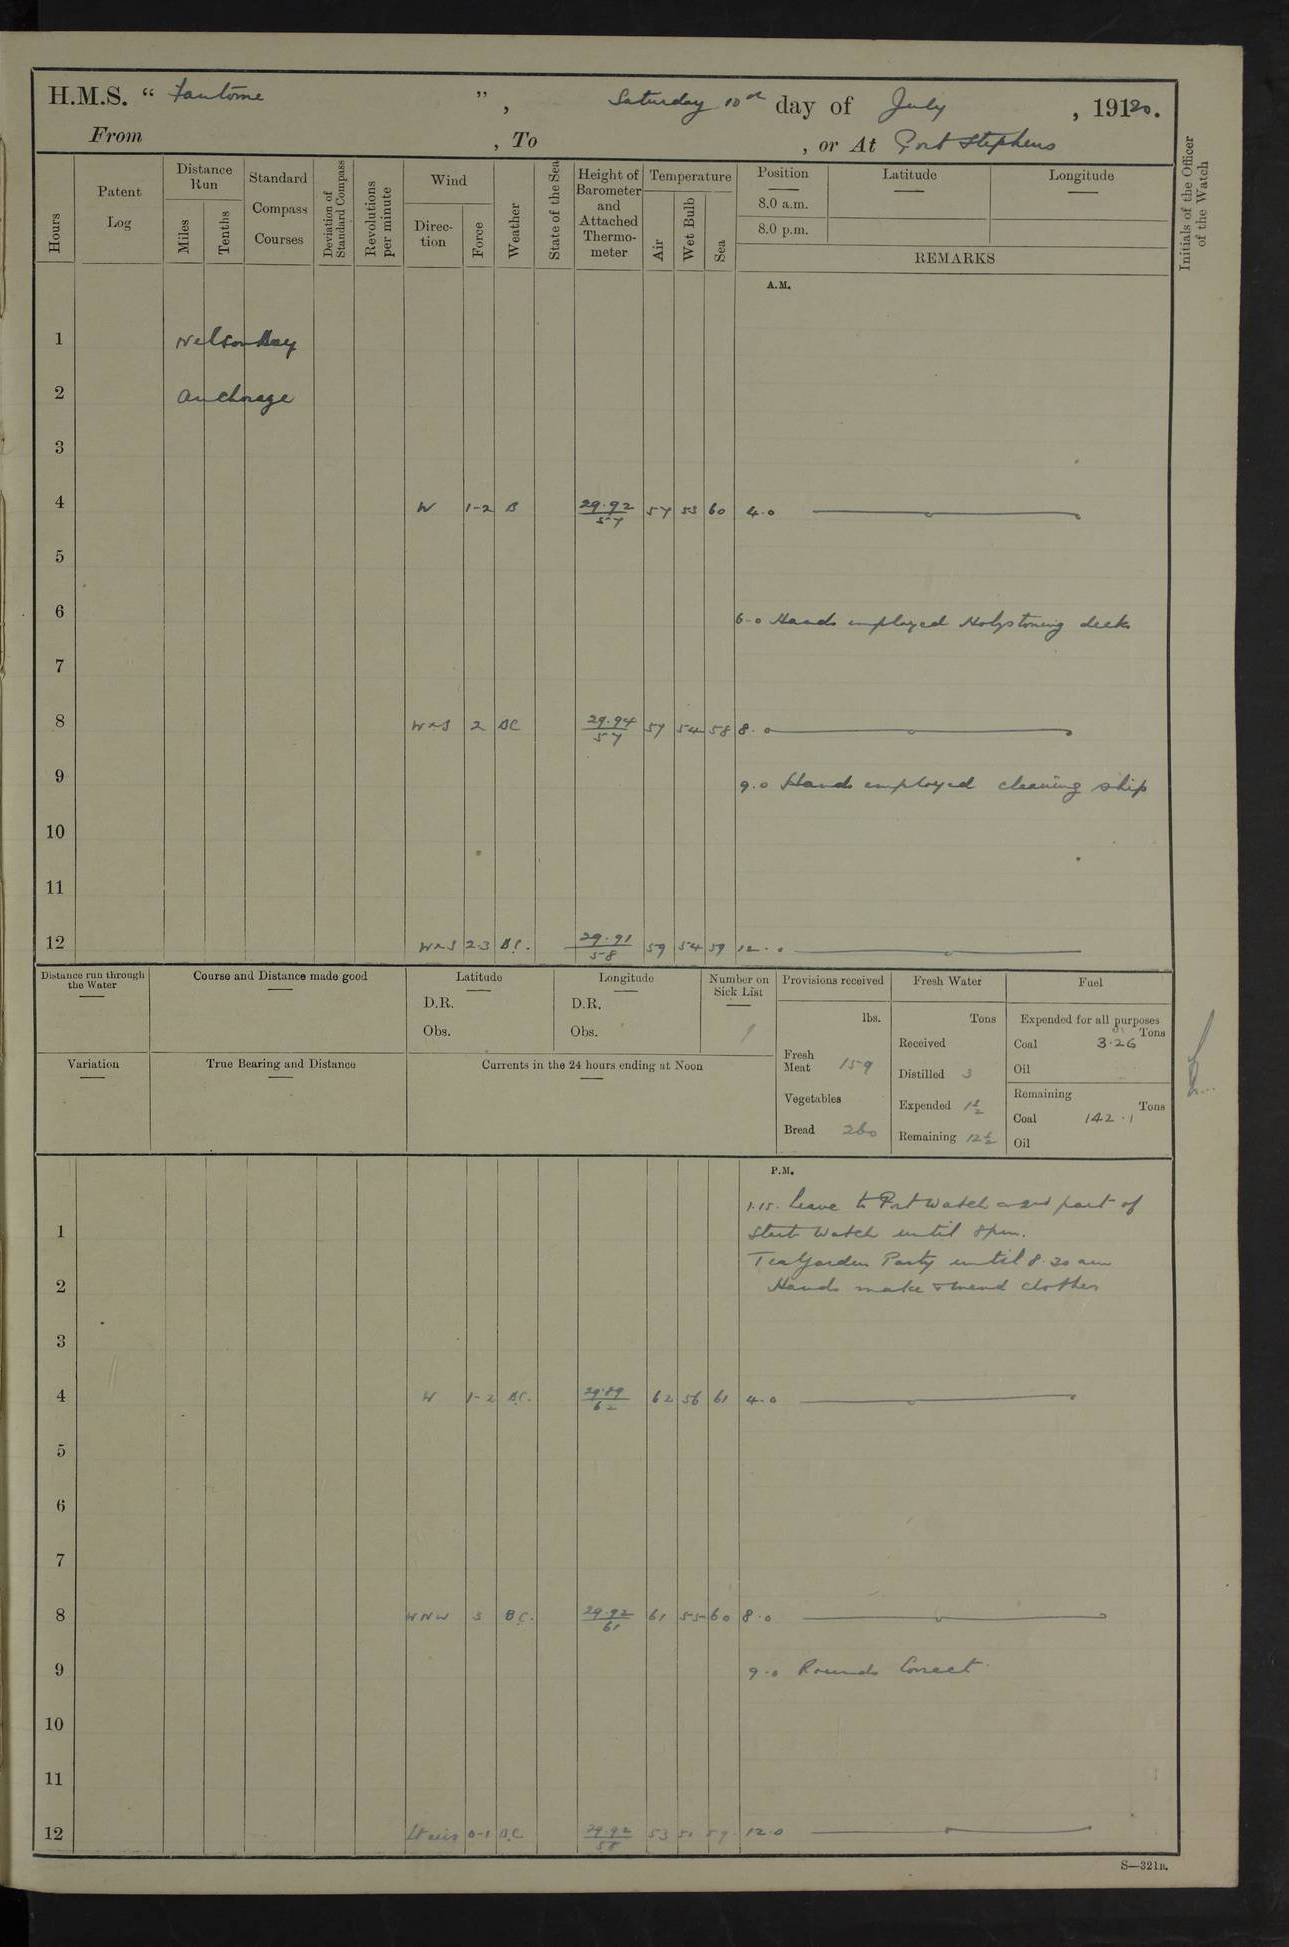 H.M.S. " Fantome ", Saturday 10th day of July, 1920.
From , To , or At Port Stephens
Hours
Patent Log
Distance Run
Miles
Tenths
Standard Compass Courses
Deviation of Standard Compass
Revolutions per minute
Wind
Direction
Force
Weather
State of the Sea
Height of Barometer and Attached Thermometer
Temperature
Air
Wet Bulb
Sea
Position Latitude Longitude
8.0 a.m.
8.0 p.m.
REMARKS
Initials of the Officer of the Watch
A.M.
1 Nelson Bay
2 Anchorage
3
4 W 1-2 B 29.92 57 57 53 60 4.0
5
6 6.0 Hands employed Holystoning decks
7
8 WxS 2 BC 29.94 57 57 54 58 8.0
9 9.0 Hands employed cleaning ship
10
11
12 WxS 2.3 B.C. 29.91 58 59 54 59 12.0
Distance run through the Water
Course and Distance made good
Latitude
D.R.
Obs.
Longitude
D.R.
Obs.
Number on Sick List
1
Provisions received
lbs.
Fresh Meat 159
Vegetables
Bread 260
Fresh Water
Tons
Received
Distilled 3
Expended 1½
Remaining 12½
Fuel
Expended for all purposes
Tons
Coal 3.26
Oil
Remaining
Tons
Coal 142.1
Oil
Variation
True Bearing and Distance
Currents in the 24 hours ending at Noon
P.M.
1.15. Leave to Port Watch and part of
1 Stbd Watch until 8pm.
Tea Garden Party until 8.30 am
2 Hands make & mend clothes
3
4 W 1-2 B.C. 29.89 62 62 56 61 4.0
5
6
7
8 WNW 3 B.C. 29.92 61 61 55 60 8.0
9 9.0 Rounds Correct.
10
11
12 Lt airs 0-1 B.C 29.92 58 53 51 59 12.0
S—321B.